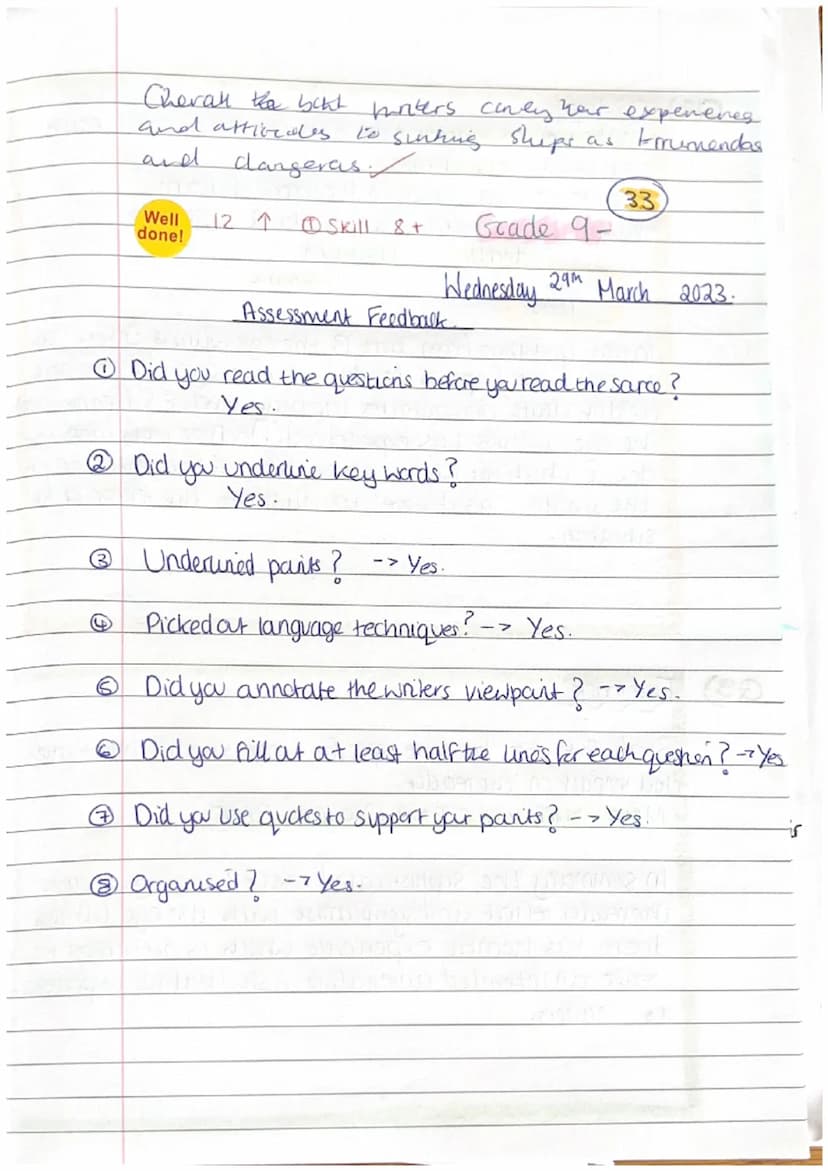 Overall the both writers convey their experiences
and attitudes to sinking ships as tremendous
and dangerous.
33
Well
done!
12 ↑ ① Skill 8+ Grade 9-
Wednesday 29th March 2023.
Assessment Feedback.
① Did you read the questions before you read the source?
Yes.
② Did you underline key words?
Yes.
③ Underlined points? --> Yes.
④ Picked out language techniques? --> Yes.
⑤ Did you annotate the writers viewpoint? --> Yes.
⑥ Did you fill out at least half the lines for each question? --> Yes
⑦ Did you use quotes to support your points? --> Yes.
is
⑧ Organised? --> Yes.